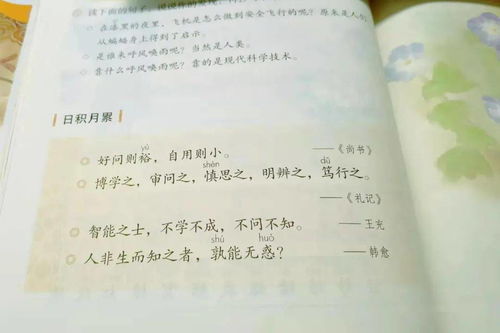 读下面的句子，说说你的发现
在漆黑的夜里，飞机是怎么做到安全飞行的呢？原来是人们
从蝙蝠身上得到了启示。
是谁来呼风唤雨呢？当然是人类。
靠什么呼风唤雨呢？靠的是现代科学技术。
日积月累
yù
好问则裕，自用则小。 ——《尚书》
shèn dǔ
博学之，审问之，慎思之，明辨之，笃行之。
——《礼记》
智能之士，不学不成，不问不知。 ——王充
shú huò
人非生而知之者，孰能无惑？ ——韩愈